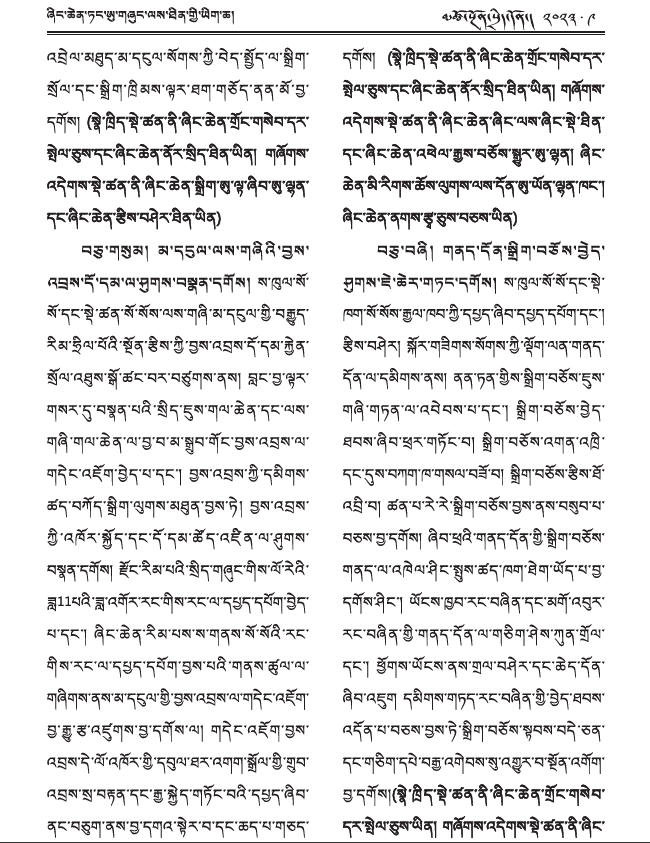 ཞིང་ཆེན་ཏང་ཨུ་གཞུང་ལས་ཐིན་གྱི་ཡིག་ཆ།
༢༠༢༣ · ༩
འབྲེལ་མཐུད་མ་དངུལ་སོགས་ཀྱི་བེད་སྤྱོད་ལ་སྒྲིག་
སྲོལ་དང་སྒྲིག་ཁྲིམས་ལྟར་ཐག་གཅོད་ནན་མོ་བྱ་
དགོས། (སྣེ་ཁྲིད་སྡེ་ཚན་ནི་ཞིང་ཆེན་གྲོང་གསེབ་དར་
སྤེལ་ཅུས་དང་ཞིང་ཆེན་ནོར་སྲིད་ཐིན་ཡིན། གཞོགས་
འདེགས་སྡེ་ཚན་ནི་ཞིང་ཆེན་སྒྲིག་ཨུ་ལྟ་ཞིབ་ཨུ་ལྷན་
དང་ཞིང་ཆེན་རྩིས་བཤེར་ཐིན་ཡིན)
བཅུ་གསུམ། མ་དངུལ་ལས་གཞིའི་བྱས་
འབྲས་དོ་དམ་ལ་ཤུགས་བསྣན་དགོས། ས་ཁུལ་སོ་
སོ་དང་སྡེ་ཚན་སོ་སོས་ལས་གཞི་མ་དངུལ་གྱི་བརྒྱུད་
རིམ་ཧྲིལ་པོའི་སྔོན་རྩིས་ཀྱི་བྱས་འབྲས་དོ་དམ་རྐྱེན་
སྲོལ་འཐུས་སྒོ་ཚང་བར་བཙུགས་ནས། བླང་བྱ་ལྟར་
གསར་དུ་བསྣན་པའི་སྲིད་ཇུས་གལ་ཆེན་དང་ལས་
གཞི་གལ་ཆེན་ལ་བྱ་བ་མ་སྒྲུབ་གོང་བྱས་འབྲས་ལ་
གདེང་འཇོག་བྱེད་པ་དང་། བྱས་འབྲས་ཀྱི་དམིགས་
ཚད་བཀོད་སྒྲིག་ལུགས་མཐུན་བྱས་ཏེ། བྱས་འབྲས་
ཀྱི་འཁོར་སྐྱོད་དང་དོ་དམ་ཚོད་འཛིན་ལ་ཤུགས་
བསྣན་དགོས། རྫོང་རིམ་པའི་སྲིད་གཞུང་གིས་ལོ་རེའི་
ཟླ11པའི་ཟླ་འགོར་རང་གིས་རང་ལ་དཔྱད་དཔོག་བྱེད་
པ་དང་། ཞིང་ཆེན་རིམ་པས་ས་གནས་སོ་སོའི་རང་
གིས་རང་ལ་དཔྱད་དཔོག་བྱས་པའི་གནས་ཚུལ་ལ་
གཞིགས་ནས་མ་དངུལ་གྱི་བྱས་འབྲས་ལ་གདེང་འཇོག་
བྱ་རྒྱུ་རྩ་འཛུགས་བྱ་དགོས་ལ། གདེང་འཇོག་བྱས་
འབྲས་དེ་ལོ་འཁོར་གྱི་དབུལ་ཐར་འགག་སྒྲོལ་གྱི་གྲུབ་
འབྲས་སྲ་བརྟན་དང་རྒྱ་སྐྱེད་གཏོང་བའི་དཔྱད་ཞིབ་
ནང་བཅུག་ནས་བྱ་དགའ་སྟེར་བ་དང་ཆད་པ་གཅད་
དགོས། (སྣེ་ཁྲིད་སྡེ་ཚན་ནི་ཞིང་ཆེན་གྲོང་གསེབ་དར་
སྤེལ་ཅུས་དང་ཞིང་ཆེན་ནོར་སྲིད་ཐིན་ཡིན། གཞོགས་
འདེགས་སྡེ་ཚན་ནི་ཞིང་ཆེན་ཞིང་ལས་ཞིང་སྡེ་ཐིན་
དང་ཞིང་ཆེན་འཕེལ་རྒྱས་བཅོས་སྒྱུར་ཨུ་ལྷན། ཞིང་
ཆེན་མི་རིགས་ཆོས་ལུགས་ལས་དོན་ཨུ་ཡོན་ལྷན་ཁང་།
ཞིང་ཆེན་ནགས་རྩྭ་ཅུས་བཅས་ཡིན)
བཅུ་བཞི། གནད་དོན་སྒྲིག་བཅོས་བྱེད་
ཤུགས་ཇེ་ཆེར་གཏང་དགོས། ས་ཁུལ་སོ་སོ་དང་སྡེ་
ཁག་སོ་སོས་རྒྱལ་ཁབ་ཀྱི་དཔྱད་ཞིབ་དཔྱད་དཔོག་དང་།
རྩིས་བཤེར། སྐོར་གཟིགས་སོགས་ཀྱི་ལྡོག་ལན་གནད་
དོན་ལ་དམིགས་ནས། ནན་ཏན་གྱིས་སྒྲིག་བཅོས་ཇུས་
གཞི་གཏན་ལ་འབེབས་པ་དང་། སྒྲིག་བཅོས་བྱེད་
ཐབས་ཞིབ་ཕྲར་གཏོང་བ། སྒྲིག་བཅོས་འགན་འཁྲི་
དང་དུས་བཀག་ཁ་གསལ་བཟོ་བ། སྒྲིག་བཅོས་རྩིས་ཐོ་
འབྲི་བ། ཚན་པ་རེ་རེ་སྒྲིག་བཅོས་བྱས་ནས་བསུབ་པ་
བཅས་བྱ་དགོས། ཞིབ་ཕྲའི་གནད་དོན་གྱི་སྒྲིག་བཅོས་
གནད་ལ་འཁེལ་ཤིང་སྤུས་ཚད་ཁག་ཐེག་ཡོད་པ་བྱ་
དགོས་ཤིང་། ཡོངས་ཁྱབ་རང་བཞིན་དང་མགོ་འབུར་
རང་བཞིན་གྱི་གནད་དོན་ལ་གཅིག་ཤེས་ཀུན་གྲོལ་
དང་། ཕྱོགས་ཡོངས་ནས་གྲལ་བཤེར་དང་ཆེད་དོན་
ཞིབ་འཇུག དམིགས་གཏད་རང་བཞིན་གྱི་བྱེད་ཐབས་
འདོན་པ་བཅས་བྱས་ཏེ་སྒྲིག་བཅོས་སྟབས་བདེ་ཅན་
དང་གཅིག་དཔེ་བརྒྱ་འགེབས་སུ་འགྱུར་བ་སྔོན་འགོག་
བྱ་དགོས།(སྣེ་ཁྲིད་སྡེ་ཚན་ནི་ཞིང་ཆེན་གྲོང་གསེབ་
དར་སྤེལ་ཅུས་ཡིན། གཞོགས་འདེགས་སྡེ་ཚན་ནི་ཞིང་